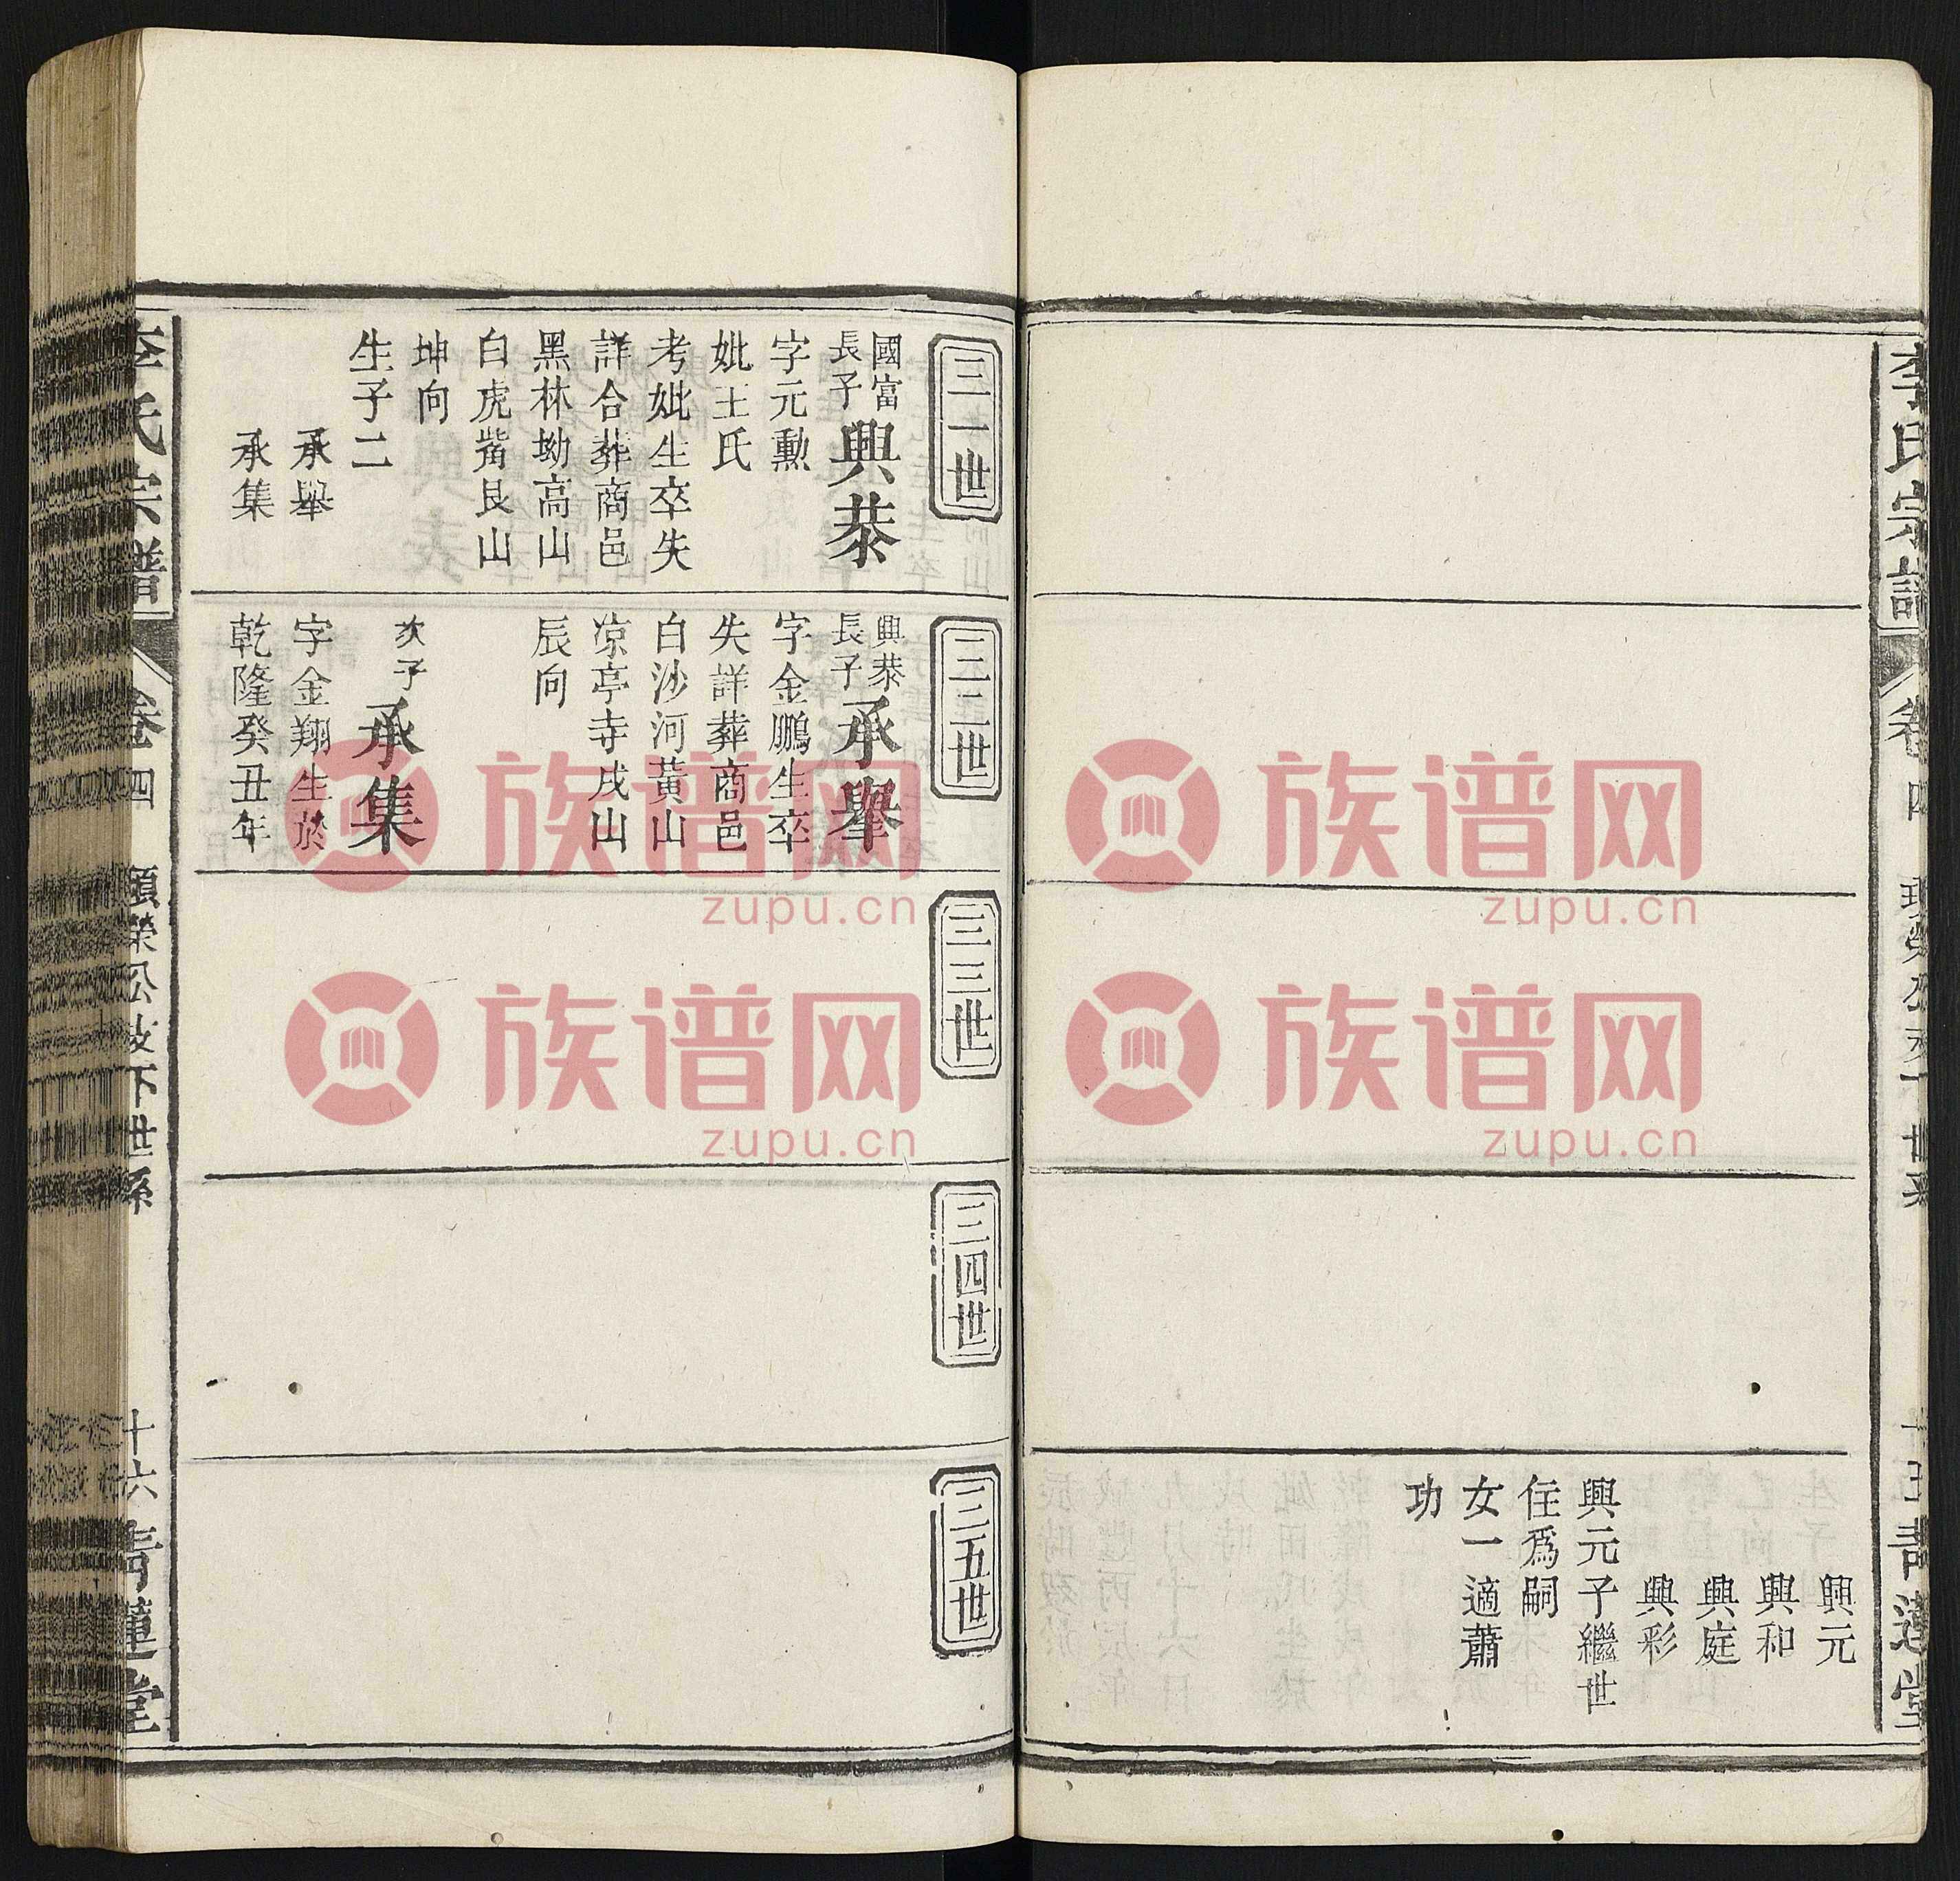 李氏宗譜
卷四
世系
青蓮堂
興元
興和
興庭
興彩
興元子繼世
住爲嗣
女一適蕭
功
三一世
國富
長子
興恭
字元勳
妣王氏
考妣生卒失
詳合葬商邑
黑林坳高山
白虎嘴艮山
坤向
生子二
承舉
承集
三二世
興恭
長子
承舉
字金鵬生卒
失詳葬商邑
白沙河黃山
凉亭寺戌山
辰向
次子
承集
字金翔生於
乾隆癸丑年
三三世
三四世
三五世
李氏宗譜
卷四
顯榮公支下世系
十六
青蓮堂
族谱网
zupu.cn
族谱网
zupu.cn
族谱网
zupu.cn
族谱网
zupu.cn